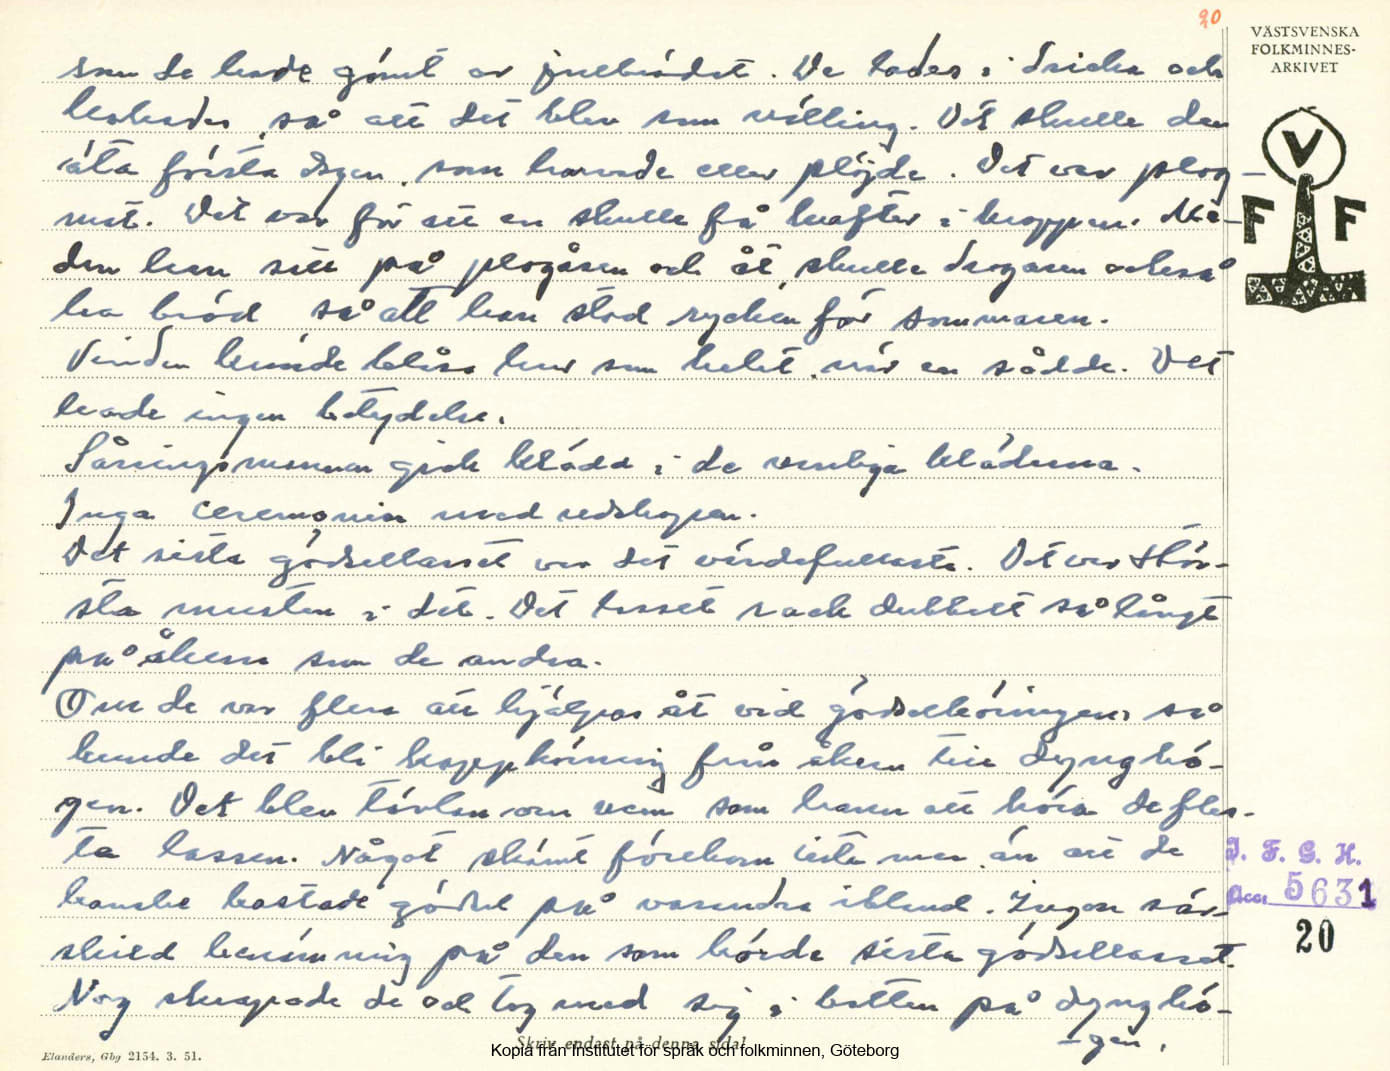 20
VÄSTSVENSKA
FOLKMINNES-
ARKIVET
som de hade gömt av julbrödet. De lades i dricka och
kokades, så att det blev som välling. Det skulle den
äta första dagen, som harvade eller plöjde. Det var plog-
mat. Det var för att en skulle få krafter i kroppen. Me-
dan han satt på plogåsen och åt skulle dragaren också
ha bröd så att han stod rycken för sommaren.
Vinden kunde blåsa hur som helst, när en sådde. Det
hade ingen betydelse.
Såningsmannen gick klädd i de vanliga kläderna.
Inga ceremonier med redskapen.
Det sista gödsellasset var det värdefullaste. Det var stör-
sta musten i det. Det lasset rack dubbelt så långt
på åkern som de andra.
Om de var flera att hjälpas åt vid gödselkörningen, så
kunde det bli kappkörning från åkern till dynghö-
gen. Det blev tävlan om vem som hann att köra de fles-
ta lassen. Något skämt förekom inte mer än att de
kanske kastade gödsel på varandra ibland. Ingen sär-
skild benämning på den som körde sista gödsellasset.
Nog skrapade de och tog med sig i botten på dynghö-
-gen.
V
F F
I. F. G. H.
Acc. 5631
20
Elanders, Gbg 2154. 3. 51.
Skriv endast på denna sida!
Kopia från Institutet för språk och folkminnen, Göteborg